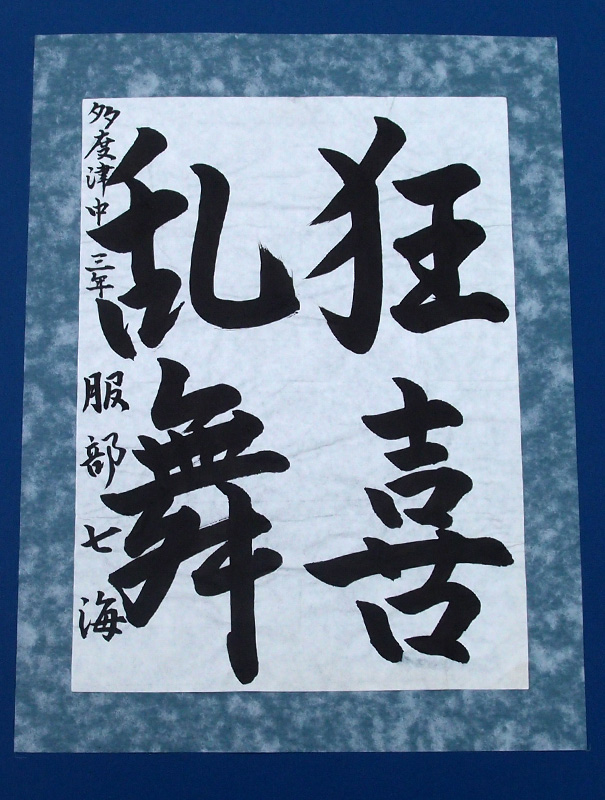 狂喜
乱舞
多度津中三年服部七海